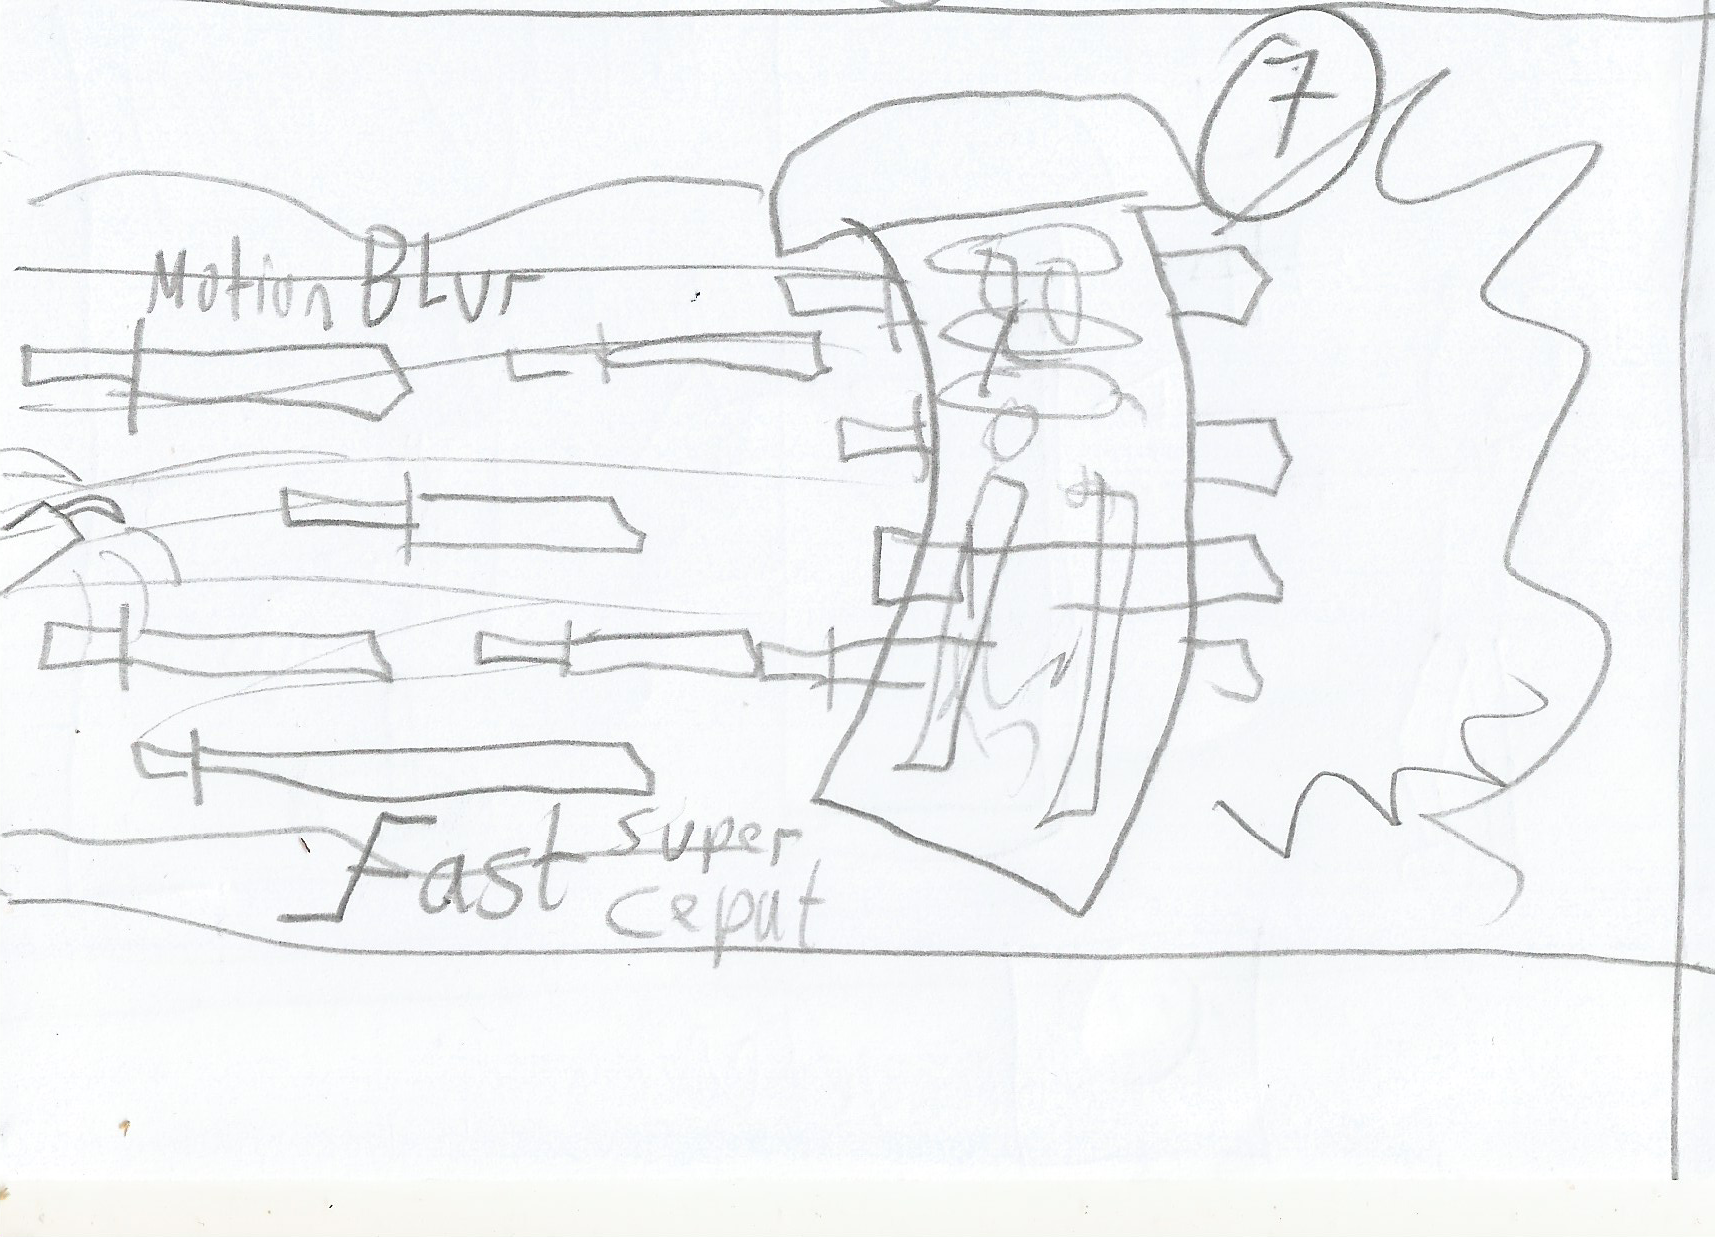 7
Motion BLur
Fast super
cepat